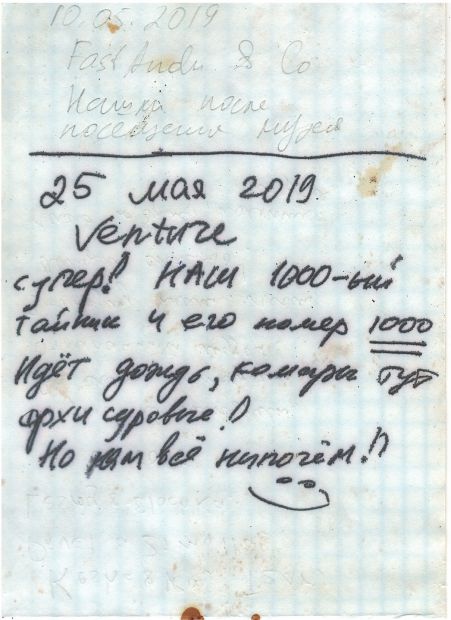 10.05.2019
Fast Andu & Co
Нашли после
посещения музея
25 мая 2019
Venture
супер! НАШ 1000-ый
тайник и его номер 1000
Идёт дождь, комары тут
архи суровые!
Но нам всё нипочём!!